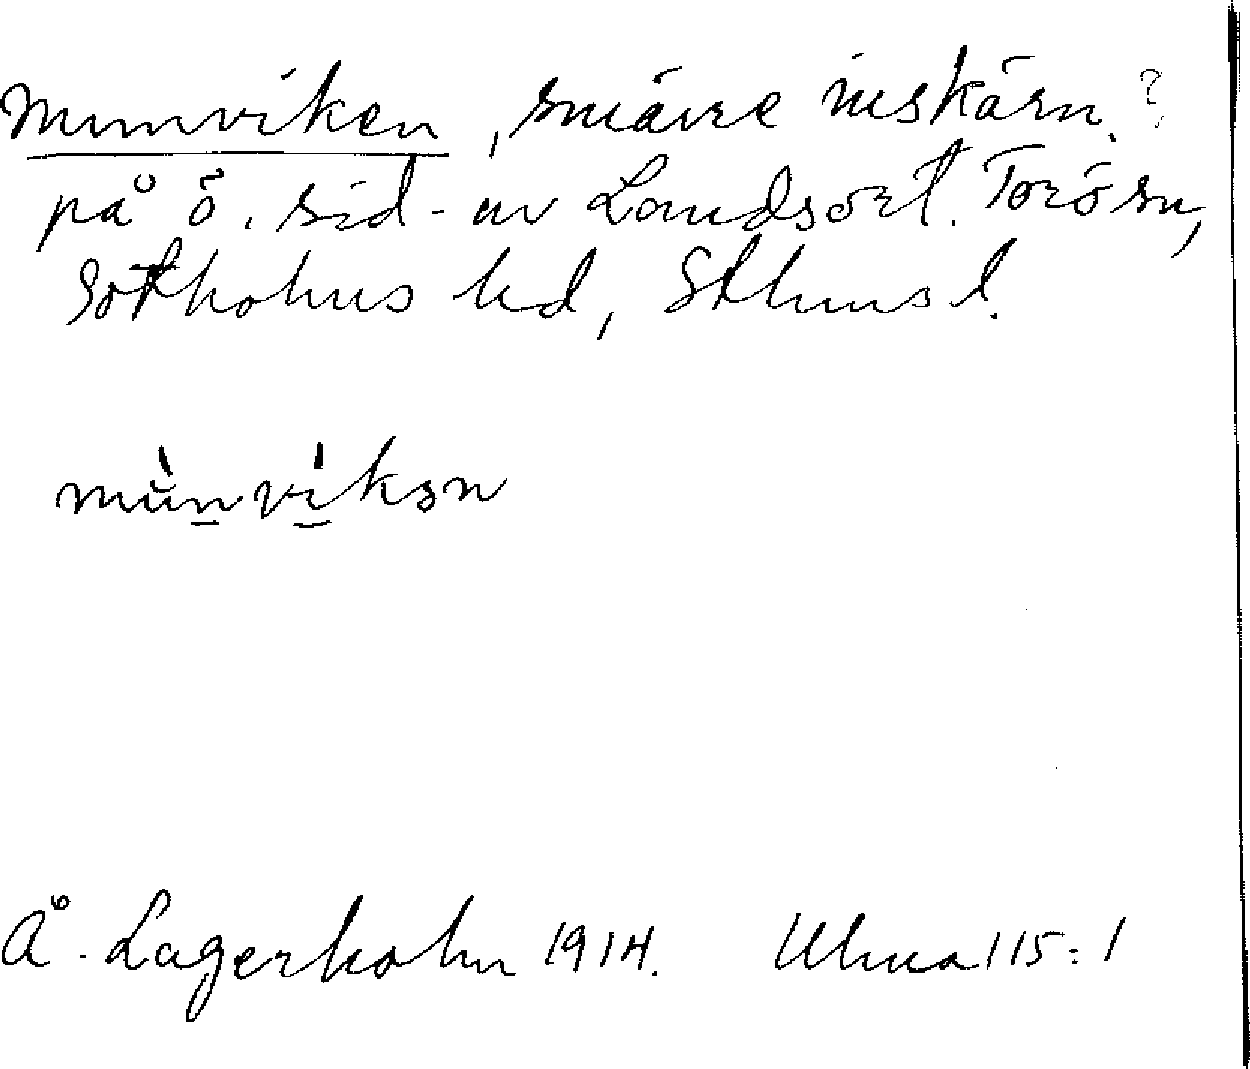 Munviken, smärre inskärn.?
på ö. sid- av Landsort. Torö sn,
Sotholms hd, Sthms l.
mùnvíkən
Å. Lagerholm 1914. Ulma 115:1